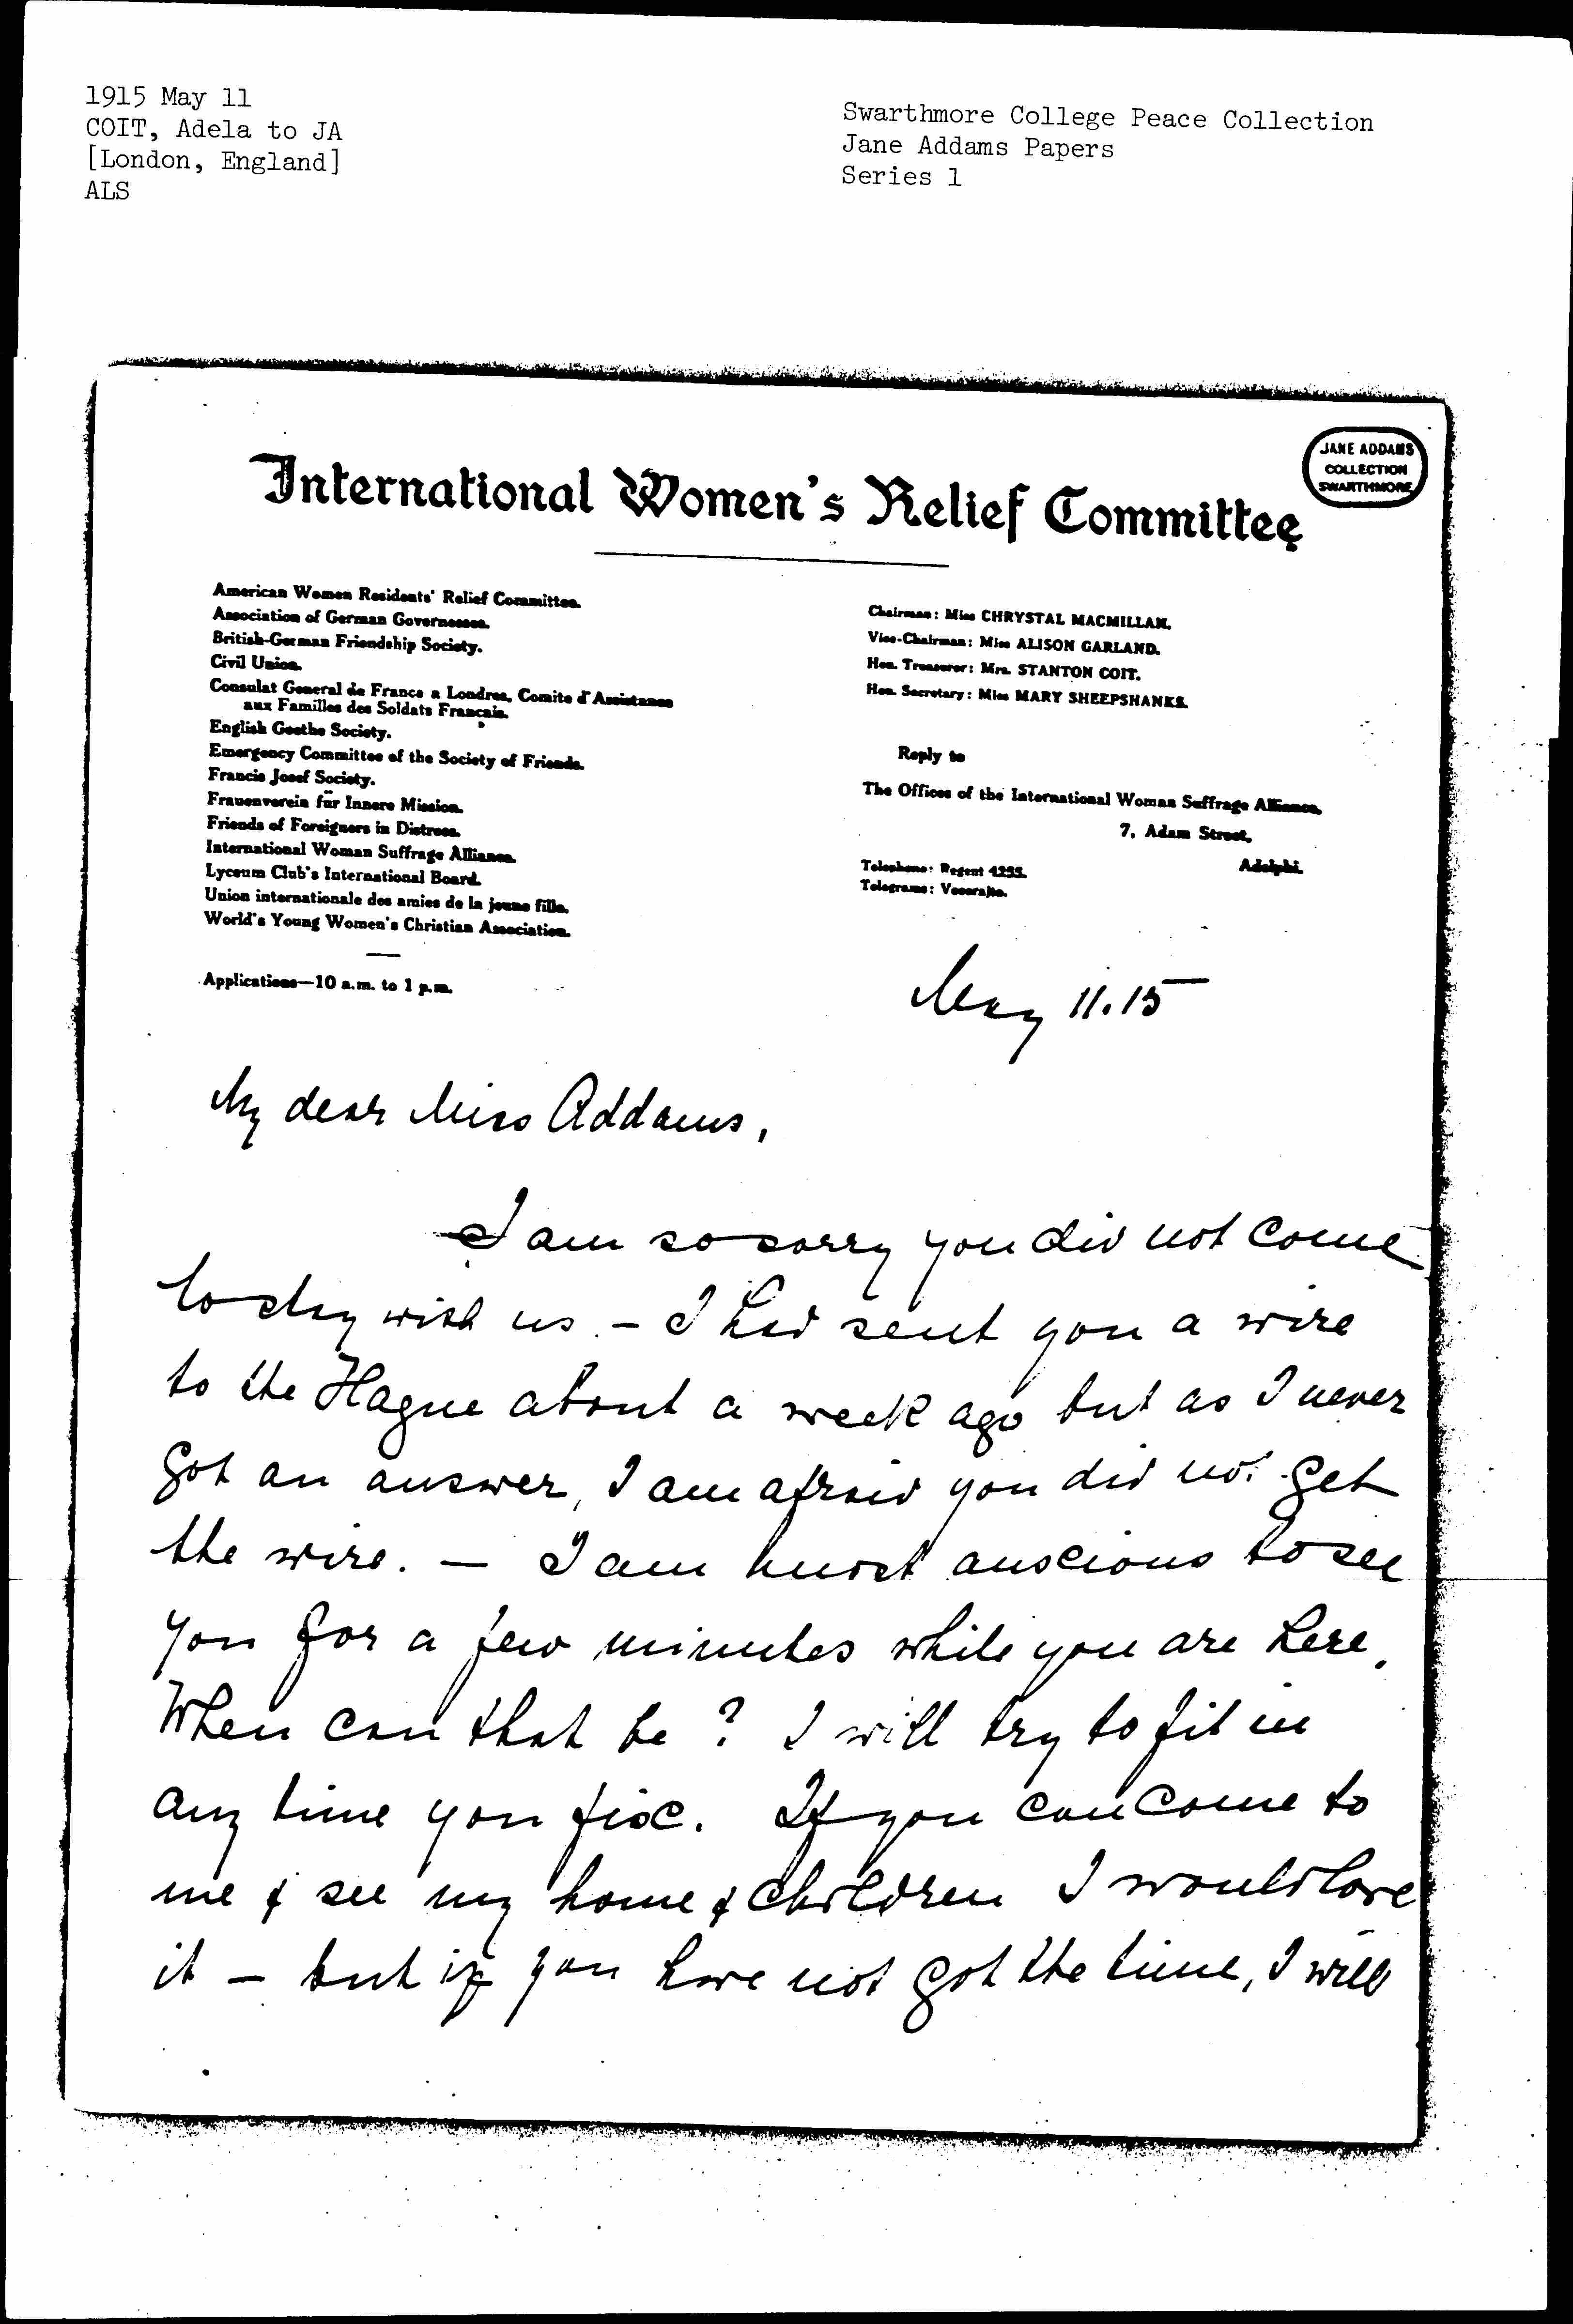 1915 May 11
COIT, Adela to JA
[London, England]
ALS
Swarthmore College Peace Collection
Jane Addams Papers
Series 1
JANE ADDAMS
COLLECTION
SWARTHMORE
International Women's Relief Committee
American Women Residents' Relief Committee.
Association of German Governesses.
British-German Friendship Society.
Civil Union.
Consulat General de France a Londres, Comite d'Assistance
aux Familles des Soldats Francais.
English Goethe Society.
Emergency Committee of the Society of Friends.
Francis Josef Society.
Frauenverein für Innere Mission.
Friends of Foreigners in Distress.
International Woman Suffrage Alliance.
Lyceum Club's International Board.
Union internationale des amies de la jeune fille.
World's Young Women's Christian Association.
Applications—10 a.m. to 1 p.m.
Chairman: Miss CHRYSTAL MACMILLAN.
Vice-Chairman: Miss ALISON GARLAND.
Hon. Treasurer: Mrs. STANTON COIT.
Hon. Secretary: Miss MARY SHEEPSHANKS.
Reply to
The Offices of the International Woman Suffrage Alliance,
7, Adam Street,
Adelphi.
Telephone: Regent 4255.
Telegrams: Vocorajto.
May 11.15
My dear Miss Addams,
I am so sorry you did not come
to stay with us. - I had sent you a wire
to the Hague about a week ago but as I never
got an answer, I am afraid you did not get
the wire. — I am most anxious to see
you for a few minutes while you are here.
When can that be? I will try to fit in
any time you fix. If you can come to
me & see my home & children I would love
it - but if you have not got the time, I will